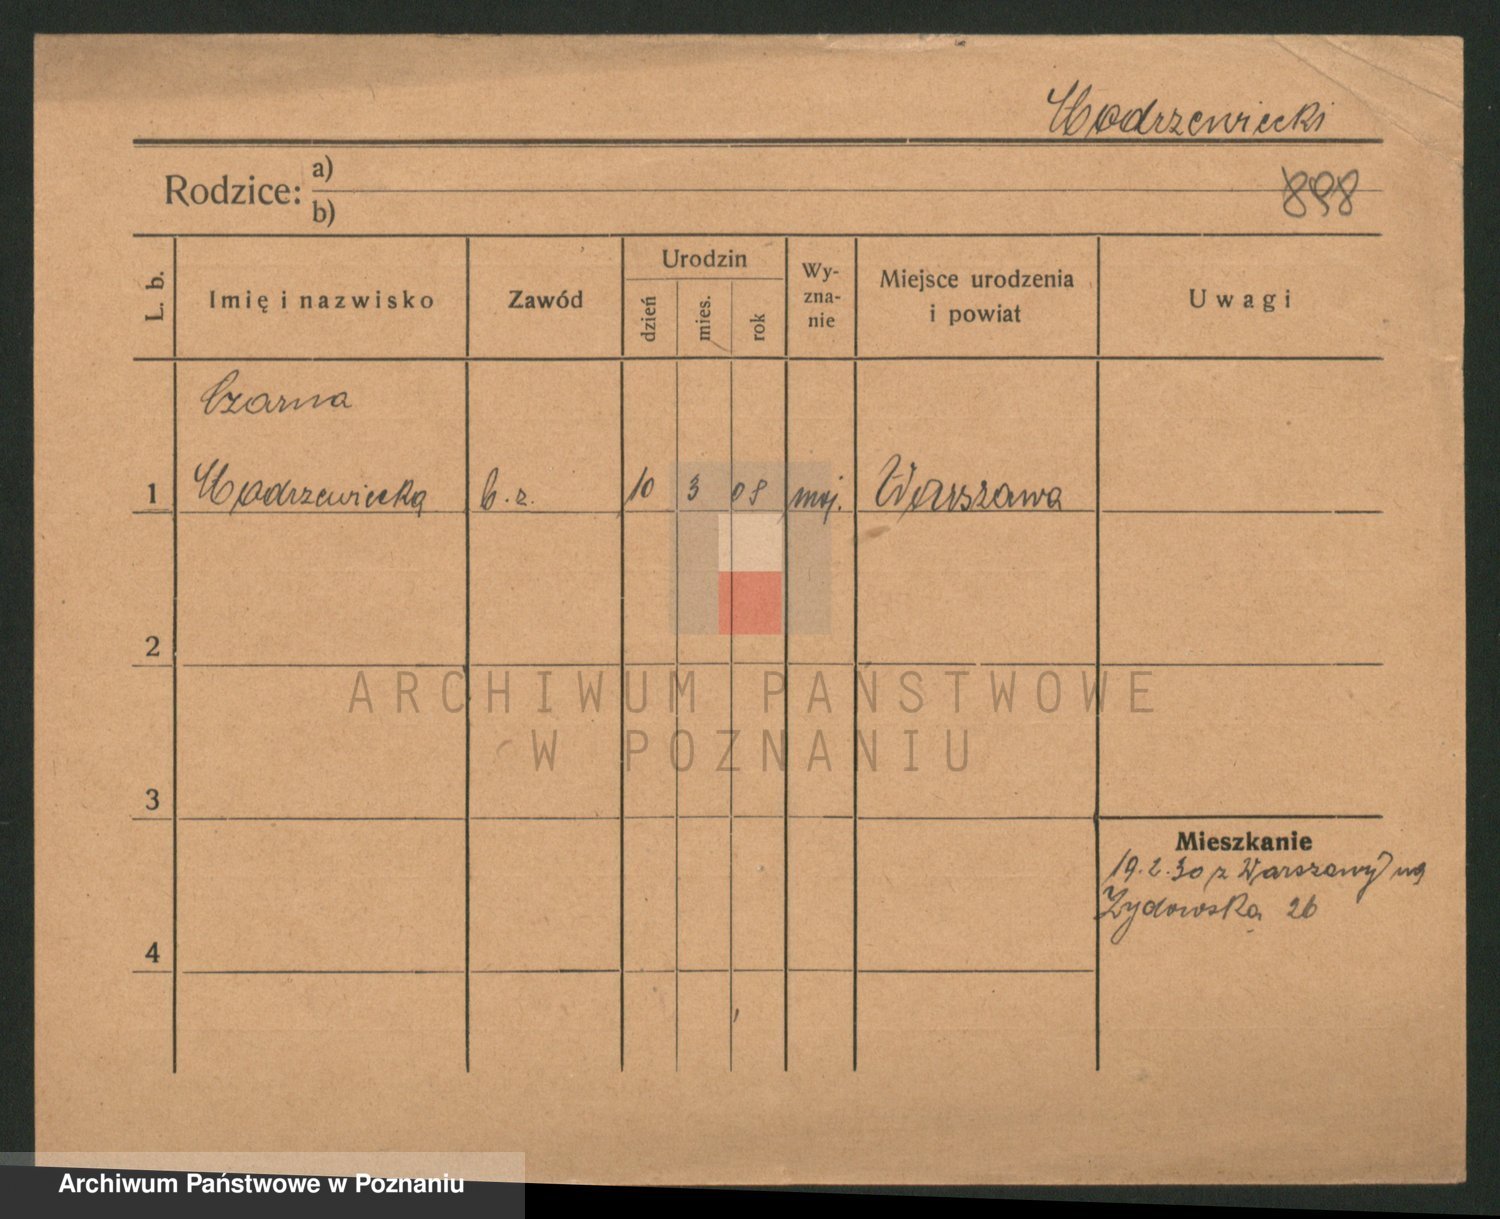 Modrzewiecki
Rodzice: a)
b)
898
L. b.
Imię i nazwisko
Zawód
Urodzin
dzień
mies.
rok
Wy-
zna-
nie
Miejsce urodzenia
i powiat
Uwagi
Czarna
1 Modrzewiecka b. z. 10 3 08 moj. Warszawa
2
ARCHIWUM PAŃSTWOWE
W POZNANIU
3
Mieszkanie
19.2.30 z Warszawy na
Żydowska 26
4
Archiwum Państwowe w Poznaniu